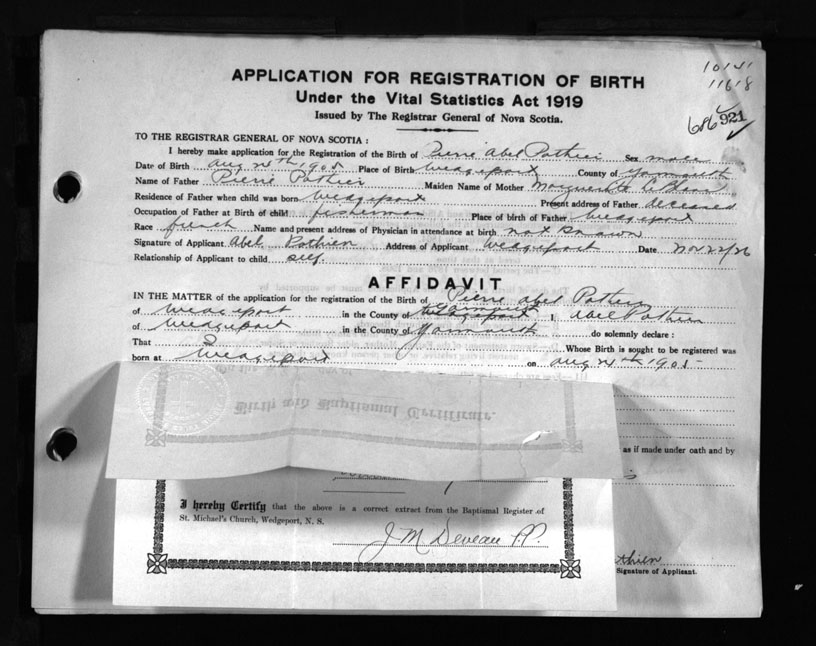 10141
11618
686
921
APPLICATION FOR REGISTRATION OF BIRTH
Under the Vital Statistics Act 1919
Issued by The Registrar General of Nova Scotia.
TO THE REGISTRAR GENERAL OF NOVA SCOTIA :
I hereby make application for the Registration of the Birth of Pierre Abel Pothier Sex male
Date of Birth Aug 1905 Place of Birth Wedgeport County of Yarmouth
Name of Father Pierre Pothier Maiden Name of Mother Marguerite LeBlanc
Residence of Father when child was born Wedgeport Present address of Father deceased
Occupation of Father at Birth of child fisherman Place of birth of Father Wedgeport
Race french Name and present address of Physician in attendance at birth not known
Signature of Applicant Abel Pothier Address of Applicant Wedgeport Date Nov 22/26
Relationship of Applicant to child self
AFFIDAVIT
IN THE MATTER of the application for the registration of the Birth of Pierre Abel Pothier
of Wedgeport in the County of Yarmouth I, Abel Pothier
of Wedgeport in the County of Yarmouth do solemnly declare :
That Whose Birth is sought to be registered was
born at Wedgeport on Aug 1905
Birth and Baptismal Certificate.
as if made under oath and by
I hereby Certify that the above is a correct extract from the Baptismal Register of
St. Michael's Church, Wedgeport, N. S.
J M Deveau P.P.
thier
Signature of Applicant.